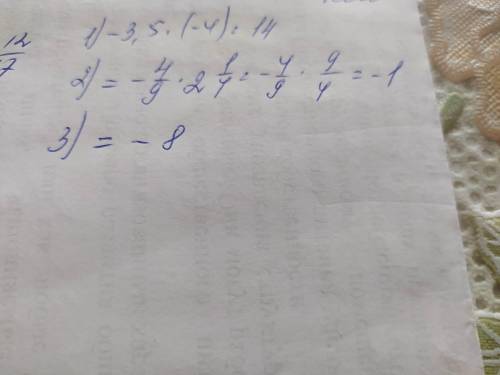 12/7
1) -3,5 · (-4) = 14
2) = - 4/9 · 2 1/4 = - 4/9 · 9/4 = -1
3) = - 8